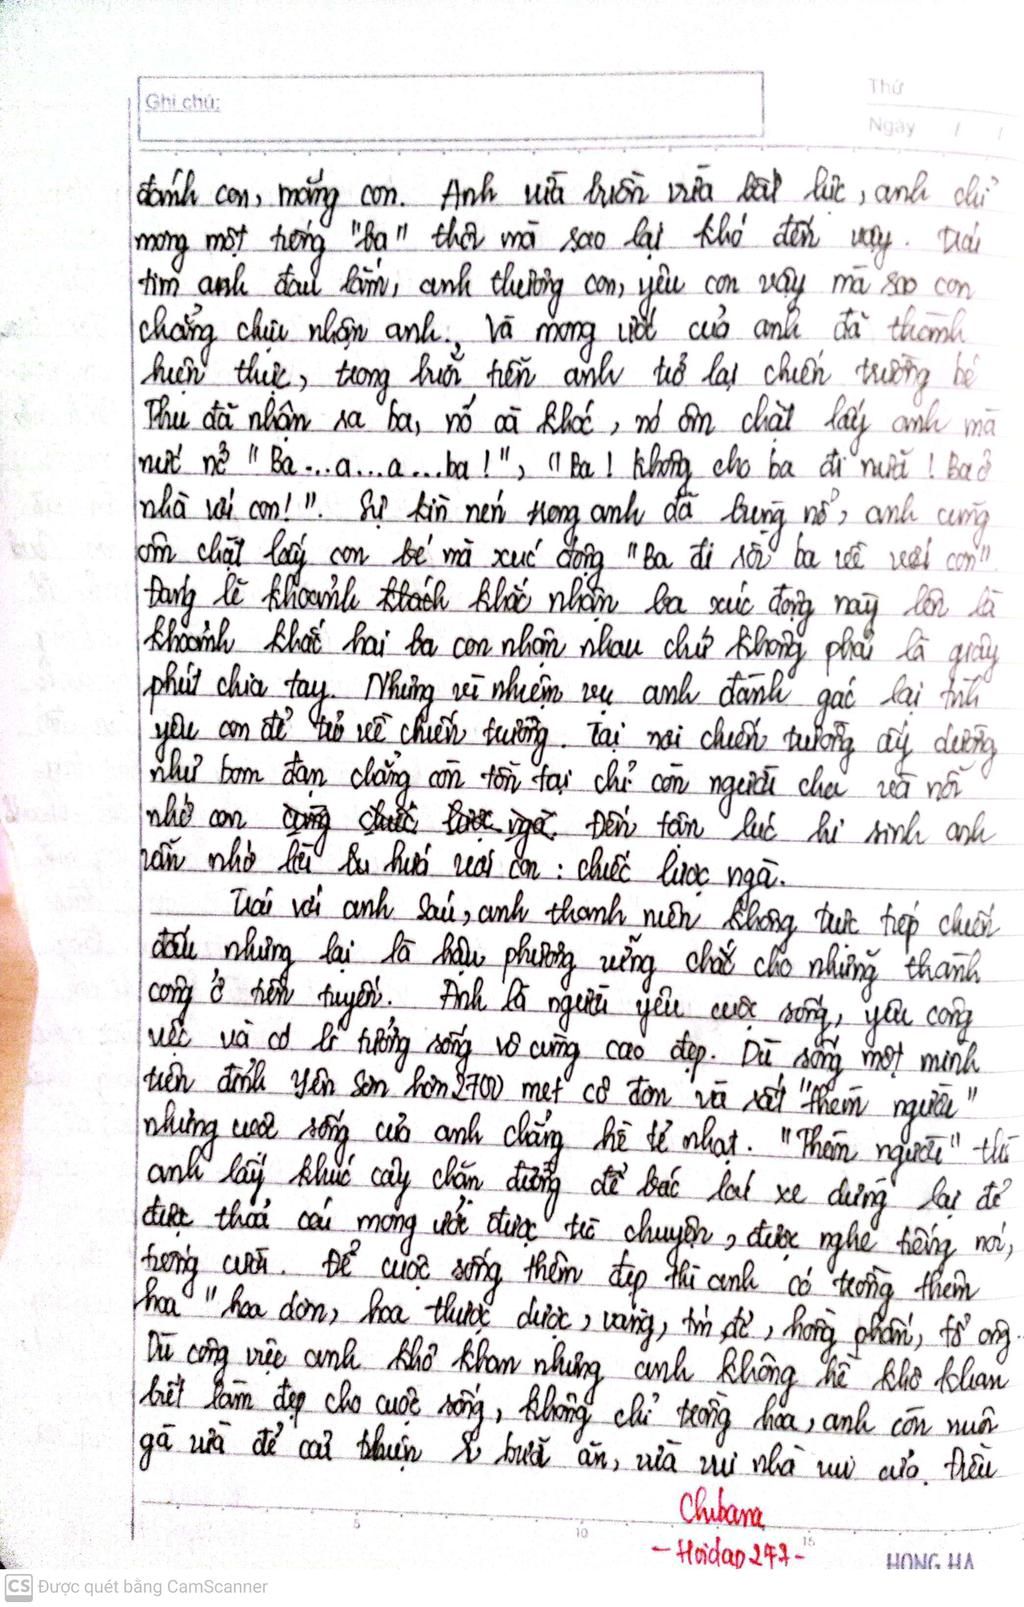 Ghi chú:
Thứ
Ngày / /
đánh con, mắng con. Anh vừa buồn vừa bất lực, anh chỉ
mong một tiếng "ba" thôi mà sao lại khó đến vậy. Trái
tim anh đau lắm, anh thương con, yêu con vậy mà sao con
chẳng chịu nhận anh. Và mong ước của anh đã thành
hiện thực, trong buổi tiễn anh trở lại chiến trường bé
Thu đã nhận ra ba, nó oà khóc, nó ôm chặt lấy anh mà
nức nở "Ba...a...a...ba!", "Ba! Không cho ba đi nữa! Ba ở
nhà với con!". Sự kìn nén trong anh đã bùng nổ, anh cũng
ôm chặt lấy con bé mà xúc động "Ba đi rồi ba về với con"
Đáng lẽ khoảnh khách khắc nhận ba xúc động này lên là
khoảnh khắc hai ba con nhận nhau chứ không phải là giây
phút chia tay. Nhưng vì nhiệm vụ anh đành gác lại tình
yêu con để trở về chiến trường. Tại nơi chiến trường ấy dường
như bom đạn chẳng còn tồn tại chỉ còn người cha và nỗi
nhớ con cùng chiếc lược ngà. Đến tận lúc hi sinh anh
vẫn nhớ lời hứa với con: chiếc lược ngà.
Trái với anh Sáu, anh thanh niên không trực tiếp chiến
đấu nhưng lại là hậu phương vững chắc cho những thành
công ở tiền tuyến. Anh là người yêu cuộc sống, yêu công
việc và có lí tưởng sống vô cùng cao đẹp. Dù sống một mình
trên đỉnh Yên Sơn hơn 2700 mét cô đơn và rất "thèm người"
nhưng cuộc sống của anh chẳng hề tẻ nhạt. "Thèm người" thì
anh lấy khúc cây chắn đường để bác lái xe dừng lại để
được thoả cái mong ước được trò chuyện, được nghe tiếng nói,
tiếng cười. Để cuộc sống thêm đẹp thì anh có trồng thêm
hoa "hoa dơn, hoa thược dược, vàng, tím, đỏ, hồng phấn, tổ ong
Dù công việc anh khô khan nhưng anh không hề khô khan
biết làm đẹp cho cuộc sống, không chỉ trồng hoa, anh còn nuôi
gà vừa để cải thiện bữa ăn, vừa vui nhà vui cửa. Điều
Chibana
- Hoidap247 -
5 10 15
HONG HA
CS Được quét bằng CamScanner